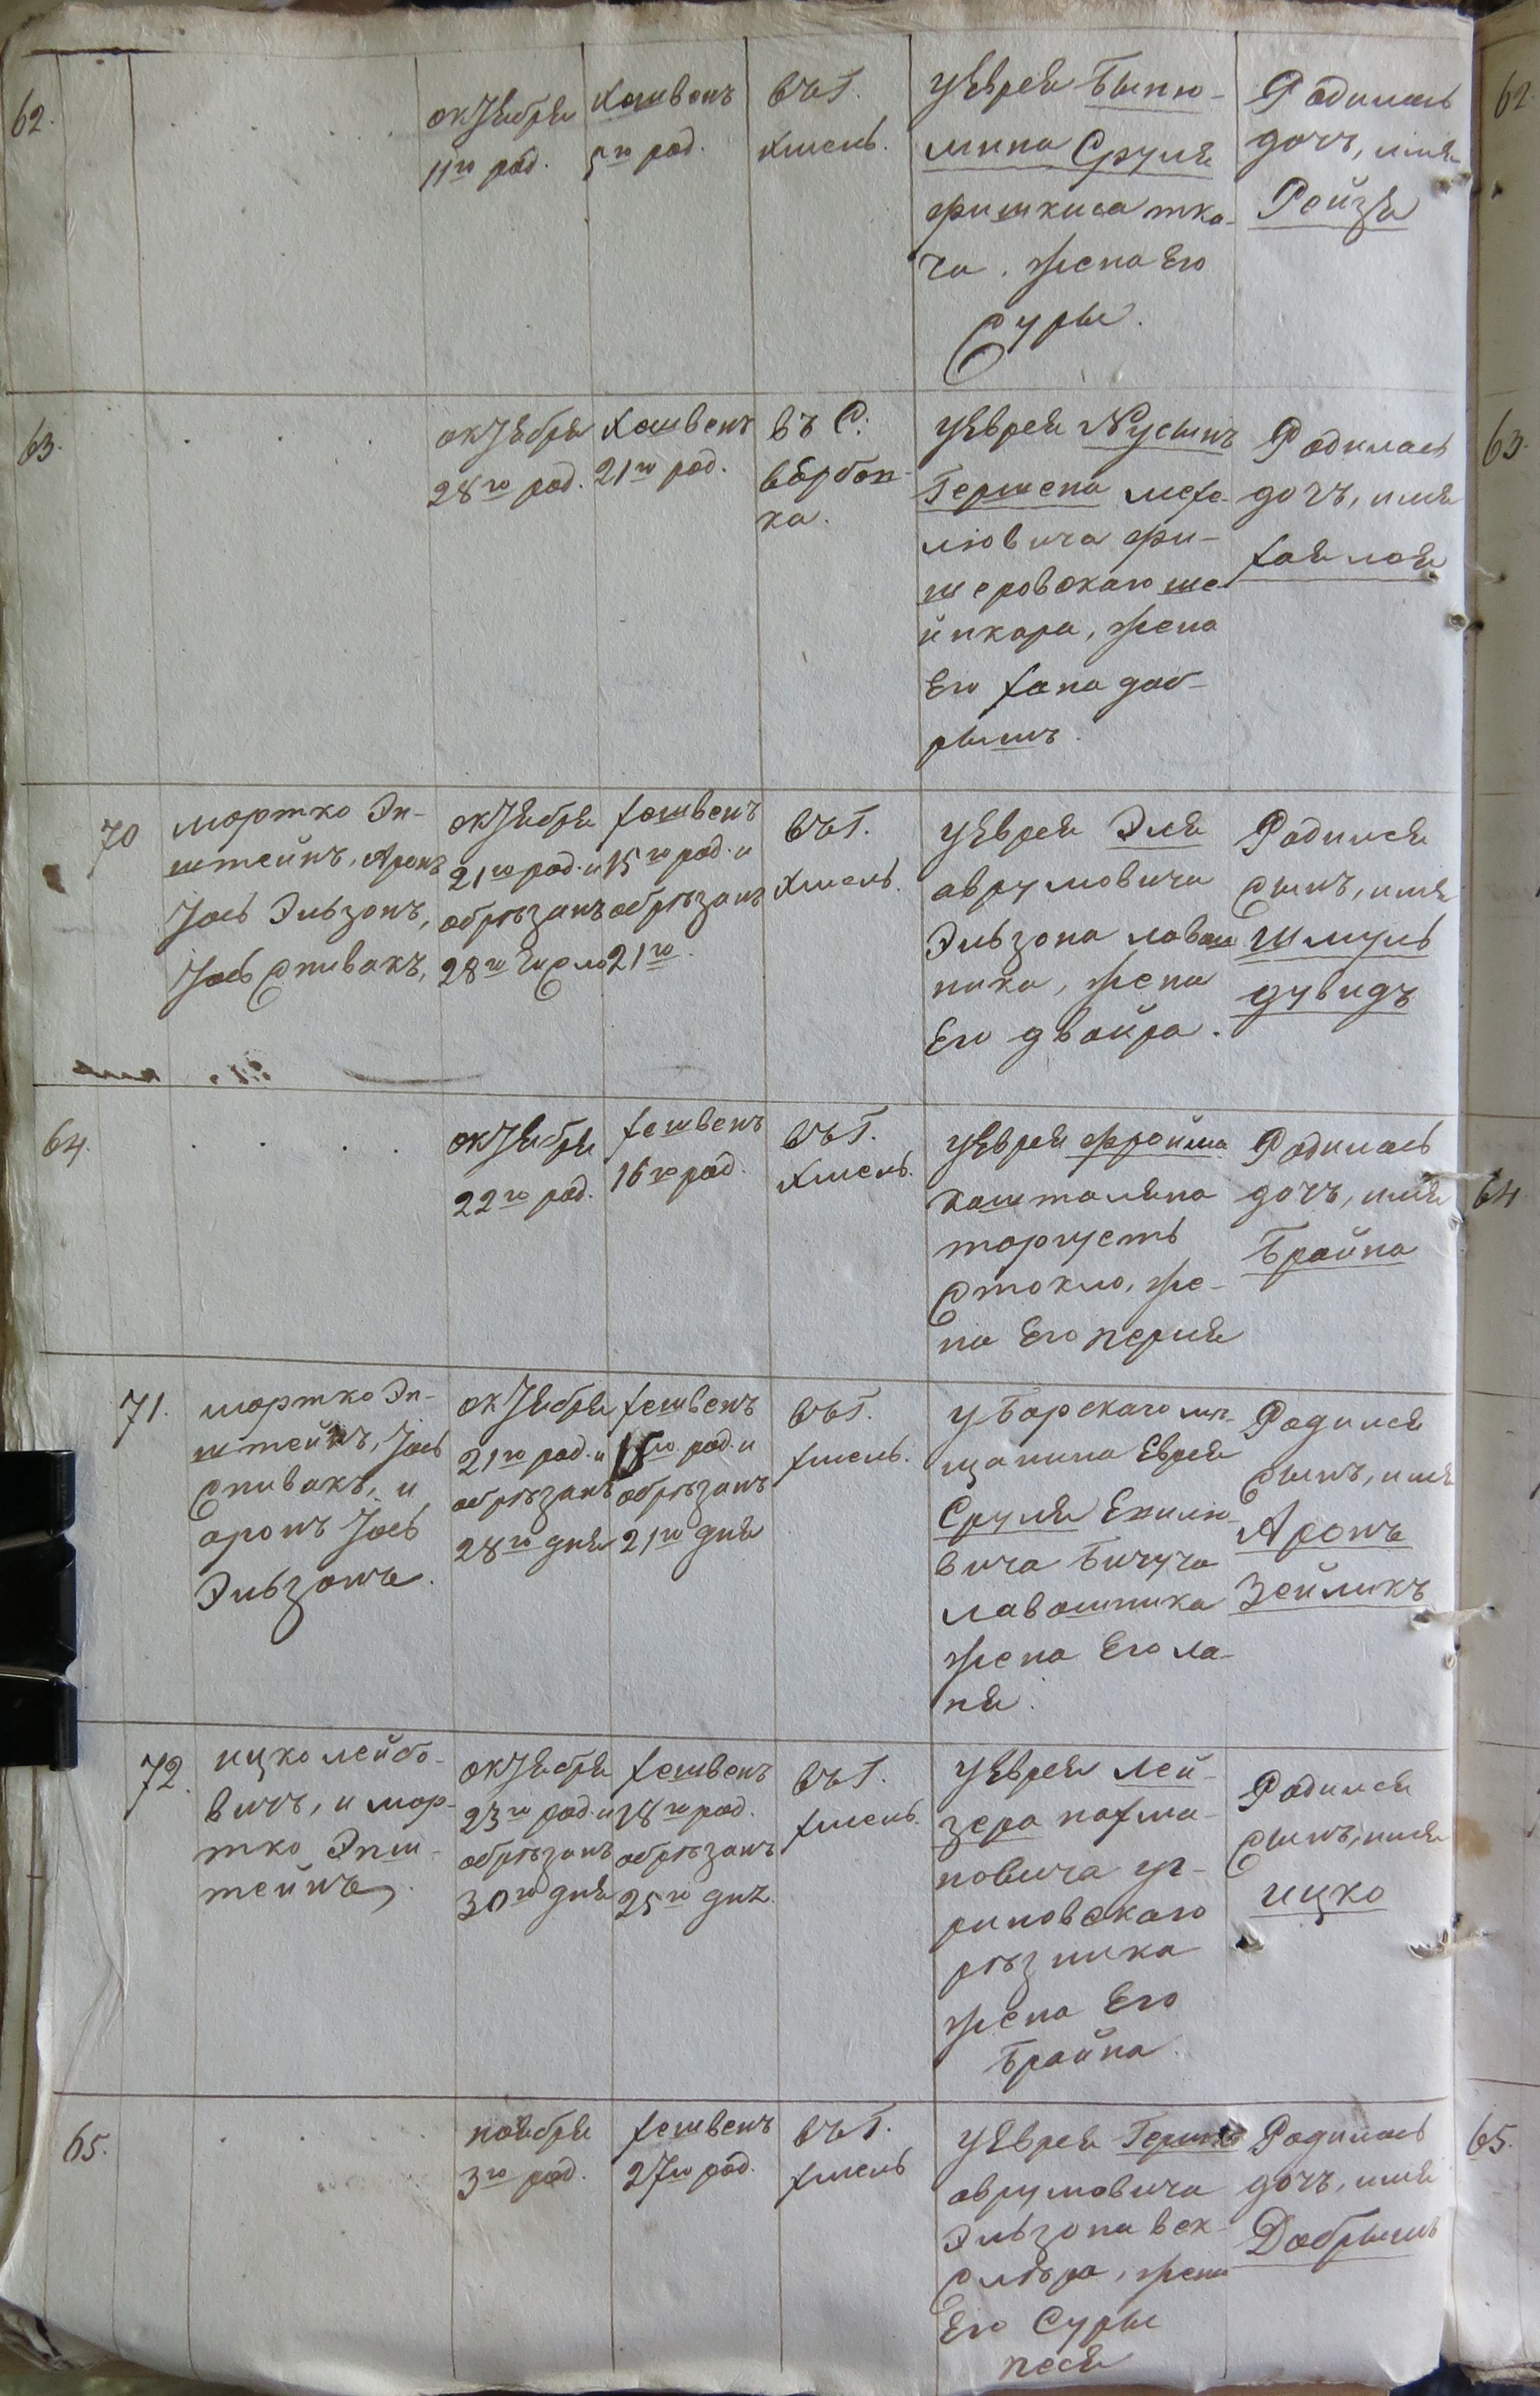 62.
октября
11го род.
Хошвонъ
5го род.
въ Г.
Хмель.
у Еврея Быню-
мина Сруля
Фишкиса тка-
ча. жена Его
Суры.
Родилась
дочъ, имя
Ройзя
62
63.
октября
28го род.
Хошвонъ
21го род.
въ С.
вербон-
ка.
у Еврея Нусынъ
Гершена мехе-
люовича фи-
шеровскаго ше-
йнкара, жена
Его хана доб-
рышъ.
Родилась
дочъ, имя
хаямоя
63.
70
мортко Эп-
штейнъ, Аронъ
Іось Эльзонъ,
Іось Спивакъ,
октября
21го род. и
обрѣзанъ
28го число
хешвенъ
15го род. и
обрѣзанъ
21го.
въ Г.
Хмель.
у Еврея Эля
аврумовича
Эльзона лавош
ника, жена
Его двойра.
Родился
сынъ, имя
шмуль
дувидъ
64.
октября
22го род.
хешвенъ
16го род.
въ Г.
Хмель.
у Еврея Фройма
каштоляна
торгуетъ
Стокло, же-
на Его перля
Родилась
дочъ, имя
Брайна
64
71.
мортко Эп-
штейнъ, Іось
Спивакъ, и
аронъ Іось
Эльзонъ.
октября
21го род. и
обрѣзанъ
28го дня
хешвенъ
15го род. и
обрѣзанъ
21го дня
въ Г.
хмель.
у Барскаго мѣ-
щанина Еврея
Сруля Ехилю-
вича Бичуча
лавошника
жена Его ха-
ня.
Родился
сынъ, имя
Аронъ
Зейликъ
72.
ицко лейбо-
вичъ, и мор-
тко Эпш-
тейнъ.
октября
23го род. и
обрѣзанъ
30го дня
хешвенъ
18го род.
обрѣзанъ
25го дня.
въ Г.
хмель.
у Еврея Лей-
зера нахма-
новича уг-
риновскаго
рѣзника
жена Его
Брайна.
Родился
сынъ, имя
ицко
65.
ноября
3го род.
хешвенъ
27го род.
въ Г.
хмель
у Еврея Гершко
аврумовича
Эльзона век-
слѣра, жена
Его Суры
песя
Родилась
дочъ, имя
Добрышъ
65.